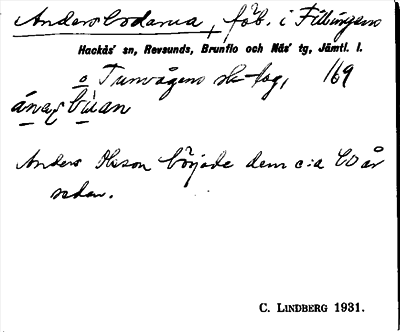 Andersbodarna, fäb. i Fillingens
Hackås' sn, Revsunds, Brunflo och Näs' tg, Jämtl. l.
o Tunvågens sk-lag, 169
ánaṣbùan
Anders Olsson började dem c:a 60 år
sedan.
C. LINDBERG 1931.